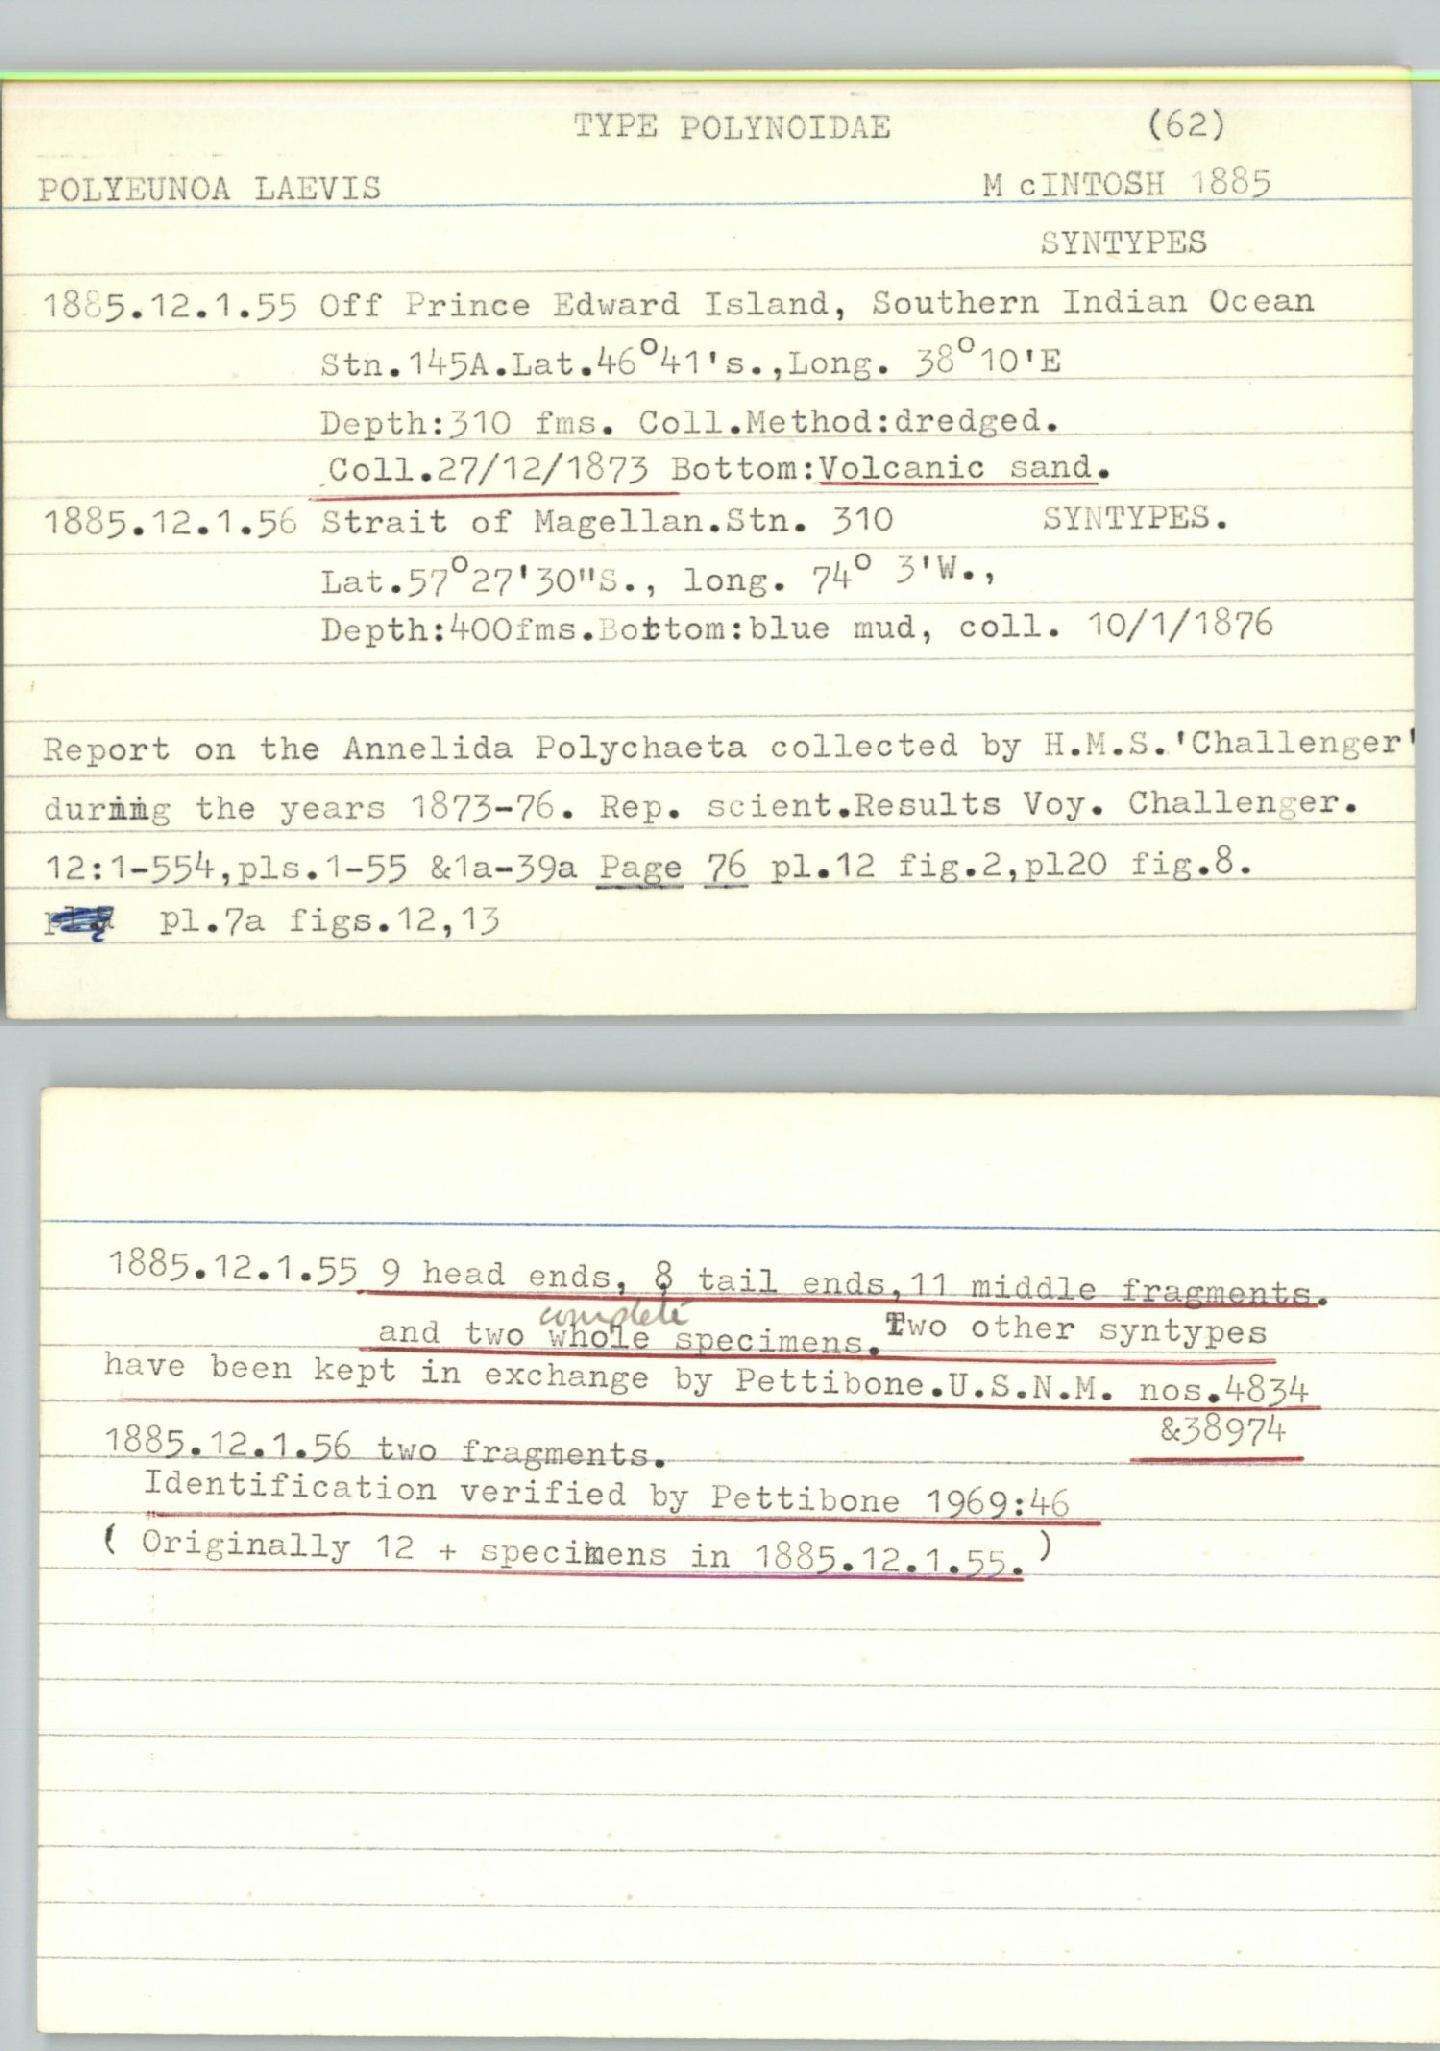 TYPE POLYNOIDAE (62)
POLYEUNOA LAEVIS McINTOSH 1885
SYNTYPES
1885.12.1.55 Off Prince Edward Island, Southern Indian Ocean
Stn.145A.Lat.46°41's.,Long. 38°10'E
Depth:310 fms. Coll.Method:dredged.
Coll.27/12/1873 Bottom:Volcanic sand.
1885.12.1.56 Strait of Magellan.Stn. 310 SYNTYPES.
Lat.57°27'30"S., long. 74° 3'W.,
Depth:400fms.Bottom:blue mud, coll. 10/1/1876
Report on the Annelida Polychaeta collected by H.M.S.'Challenger'
during the years 1873-76. Rep. scient.Results Voy. Challenger.
12:1-554,pls.1-55 &1a-39a Page 76 pl.12 fig.2,pl20 fig.8.
pl.7a figs.12,13
1885.12.1.55 9 head ends, 8 tail ends,11 middle fragments.
complete
and two whole specimens. Two other syntypes
have been kept in exchange by Pettibone.U.S.N.M. nos.4834
&38974
1885.12.1.56 two fragments.
Identification verified by Pettibone 1969:46
( Originally 12 + specimens in 1885.12.1.55.)